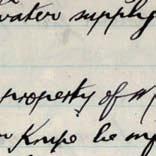 water supply
property of
Knipe be